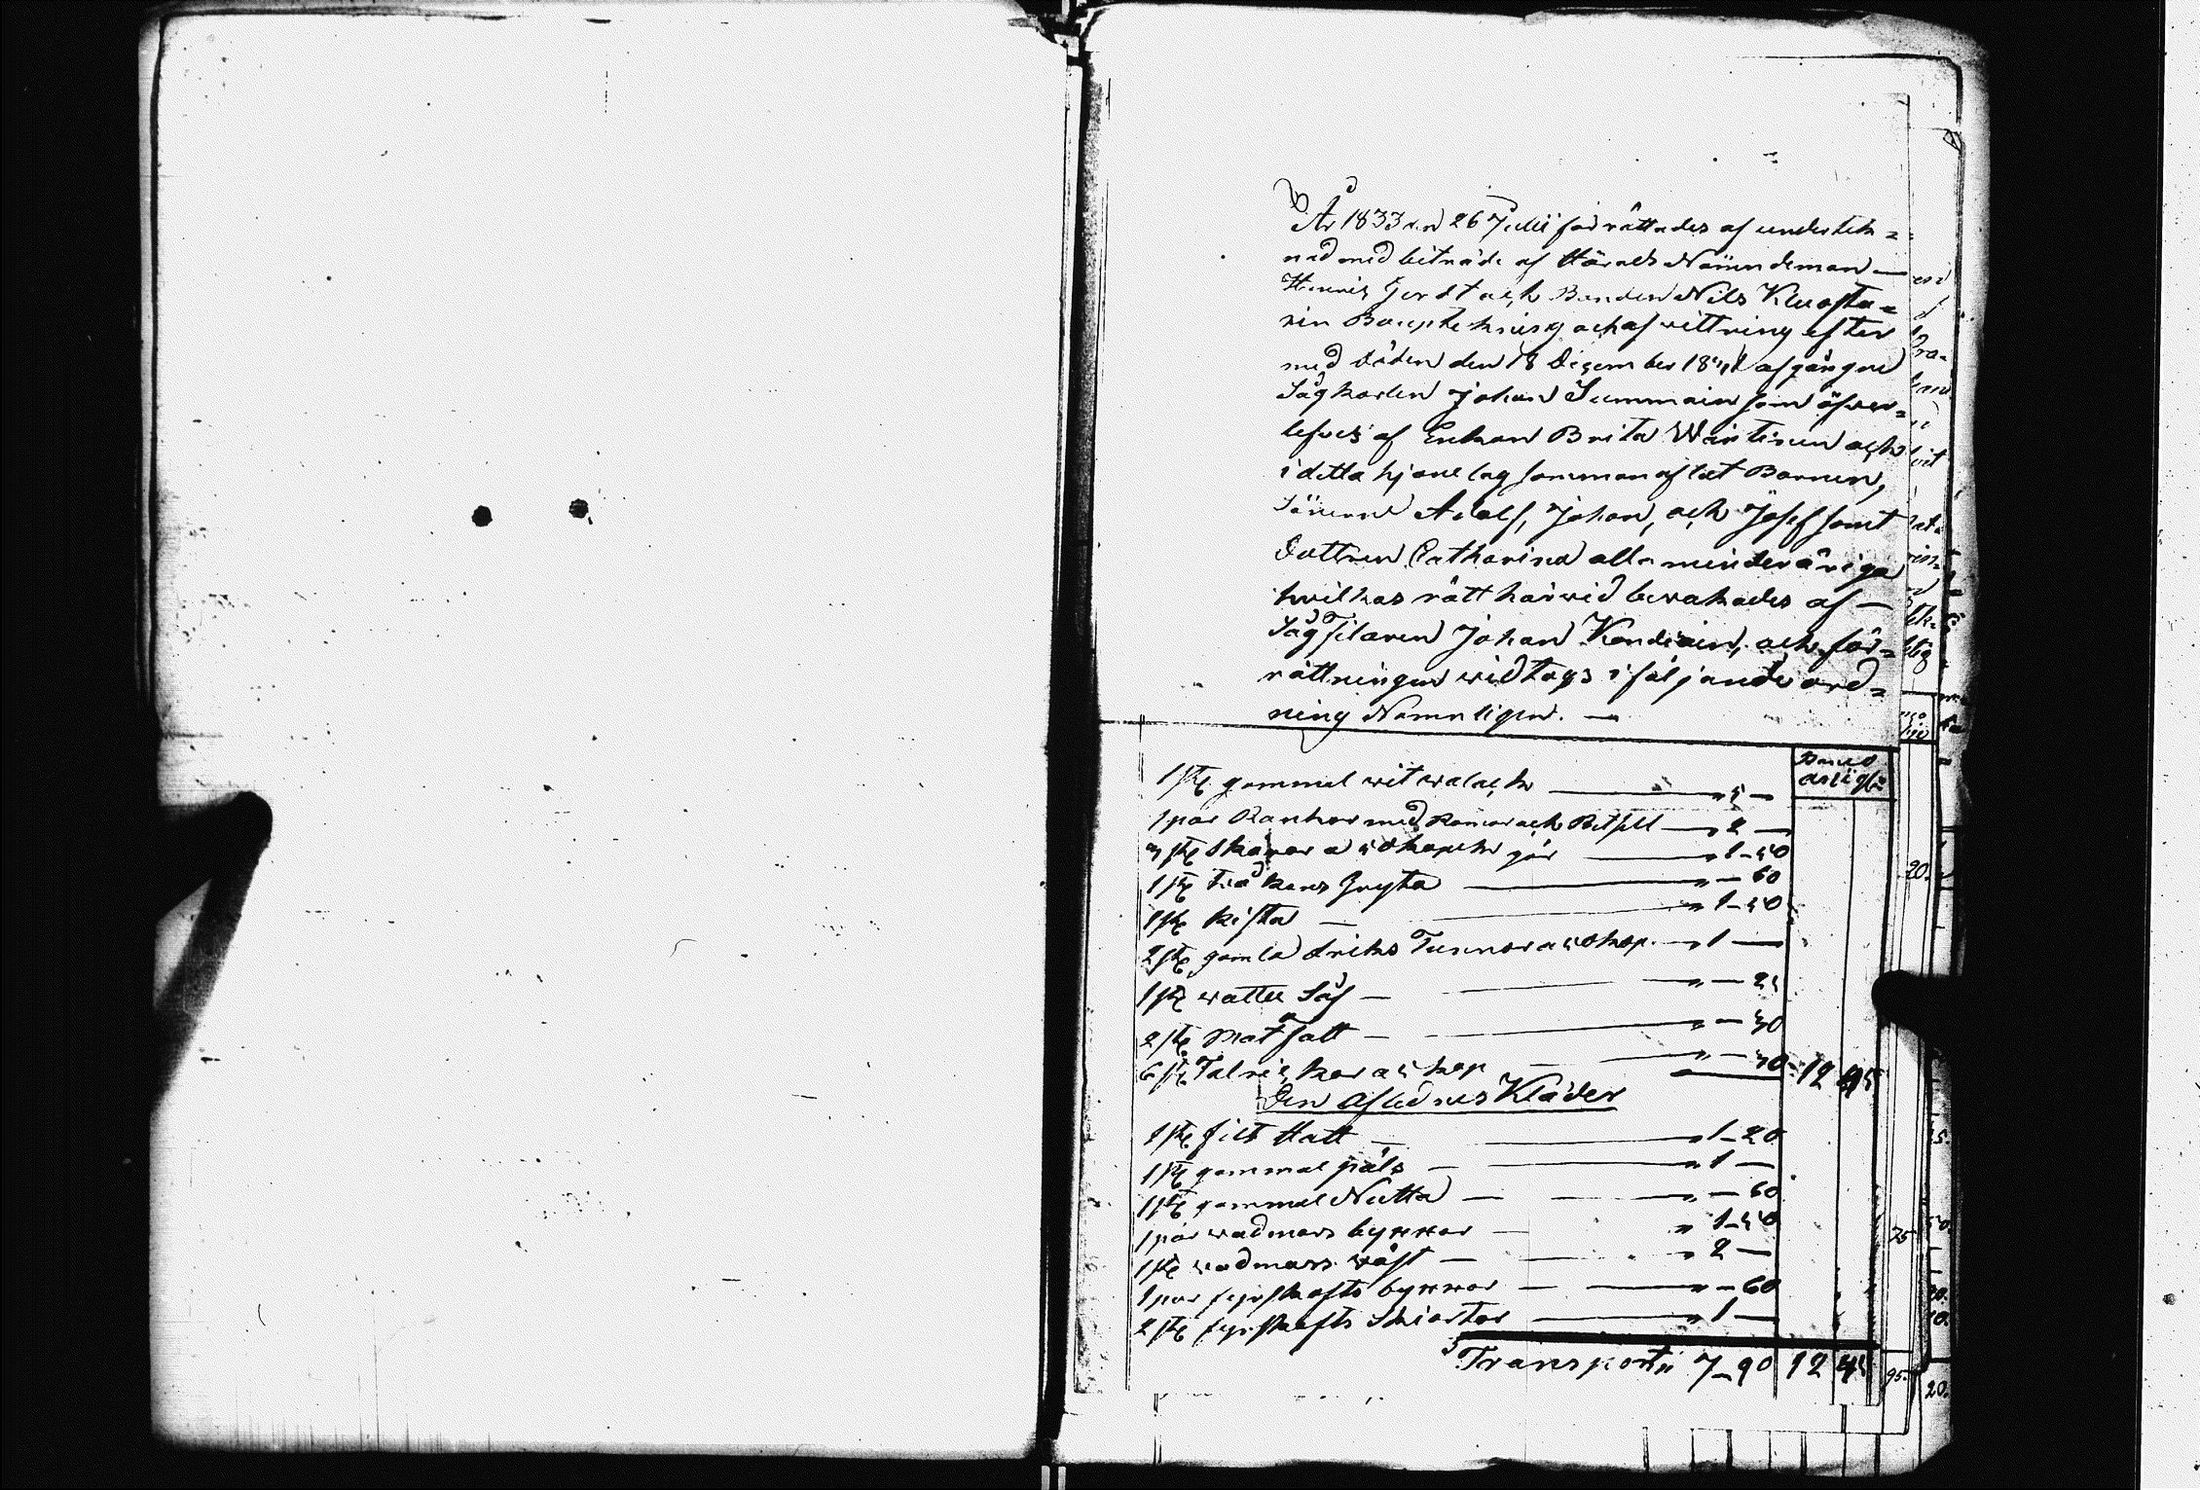 År 1833 den 26 Julii förrättades af undertek=
nad med biträde af Härads Nämndeman —
Henric Gerdt och Bonden Nils Kluasta=
rin Bouptekning och af wittring efter
med döden den 18 December afgångne
Sågkarlen Johan Summain som öfwer=
lefves af Enkan Brita Wäntinen och
i detta hjonelag sammanaflat Barnen,
Sönerne Adolf, Johan, och Josef samt
Dottren Catharina alla minderåriga
hwilkas rätt härwid bewakades af —
Sågfilaren Johan Kandiain, och för=
rättningen widtogs i följande ord=
ning Nämnligen. —
Banco
1 st gammal wit walach — " 5 —
1 par Rankor med Remor och Betsell — " 2 —
3 st skaror a 50 kopek gör — " 1-50
1 st Gryta — " — 60
1 st kista — " 1-50
2 st gamla driks Tunnor a 50 kop. — " 1 —
1 st wattu Så — " — 25
2 st Mat fatt — " — 30
6 st Talrickor a 5 kop — " — 30 12 95
Den Aflednes Kläder
1 st filt Hatt — " 1-20
1 st gammal päls — " 1 —
1 st gammal Nutta — " — 60
1 par wadmars byxxor — " 1-50
1 st wadmars wäst — " 2 —
1 par fyrskafts byxxor — " — 60
2 st fyrskafts Skiortor — " 1 —
Transport 7-90 12 95